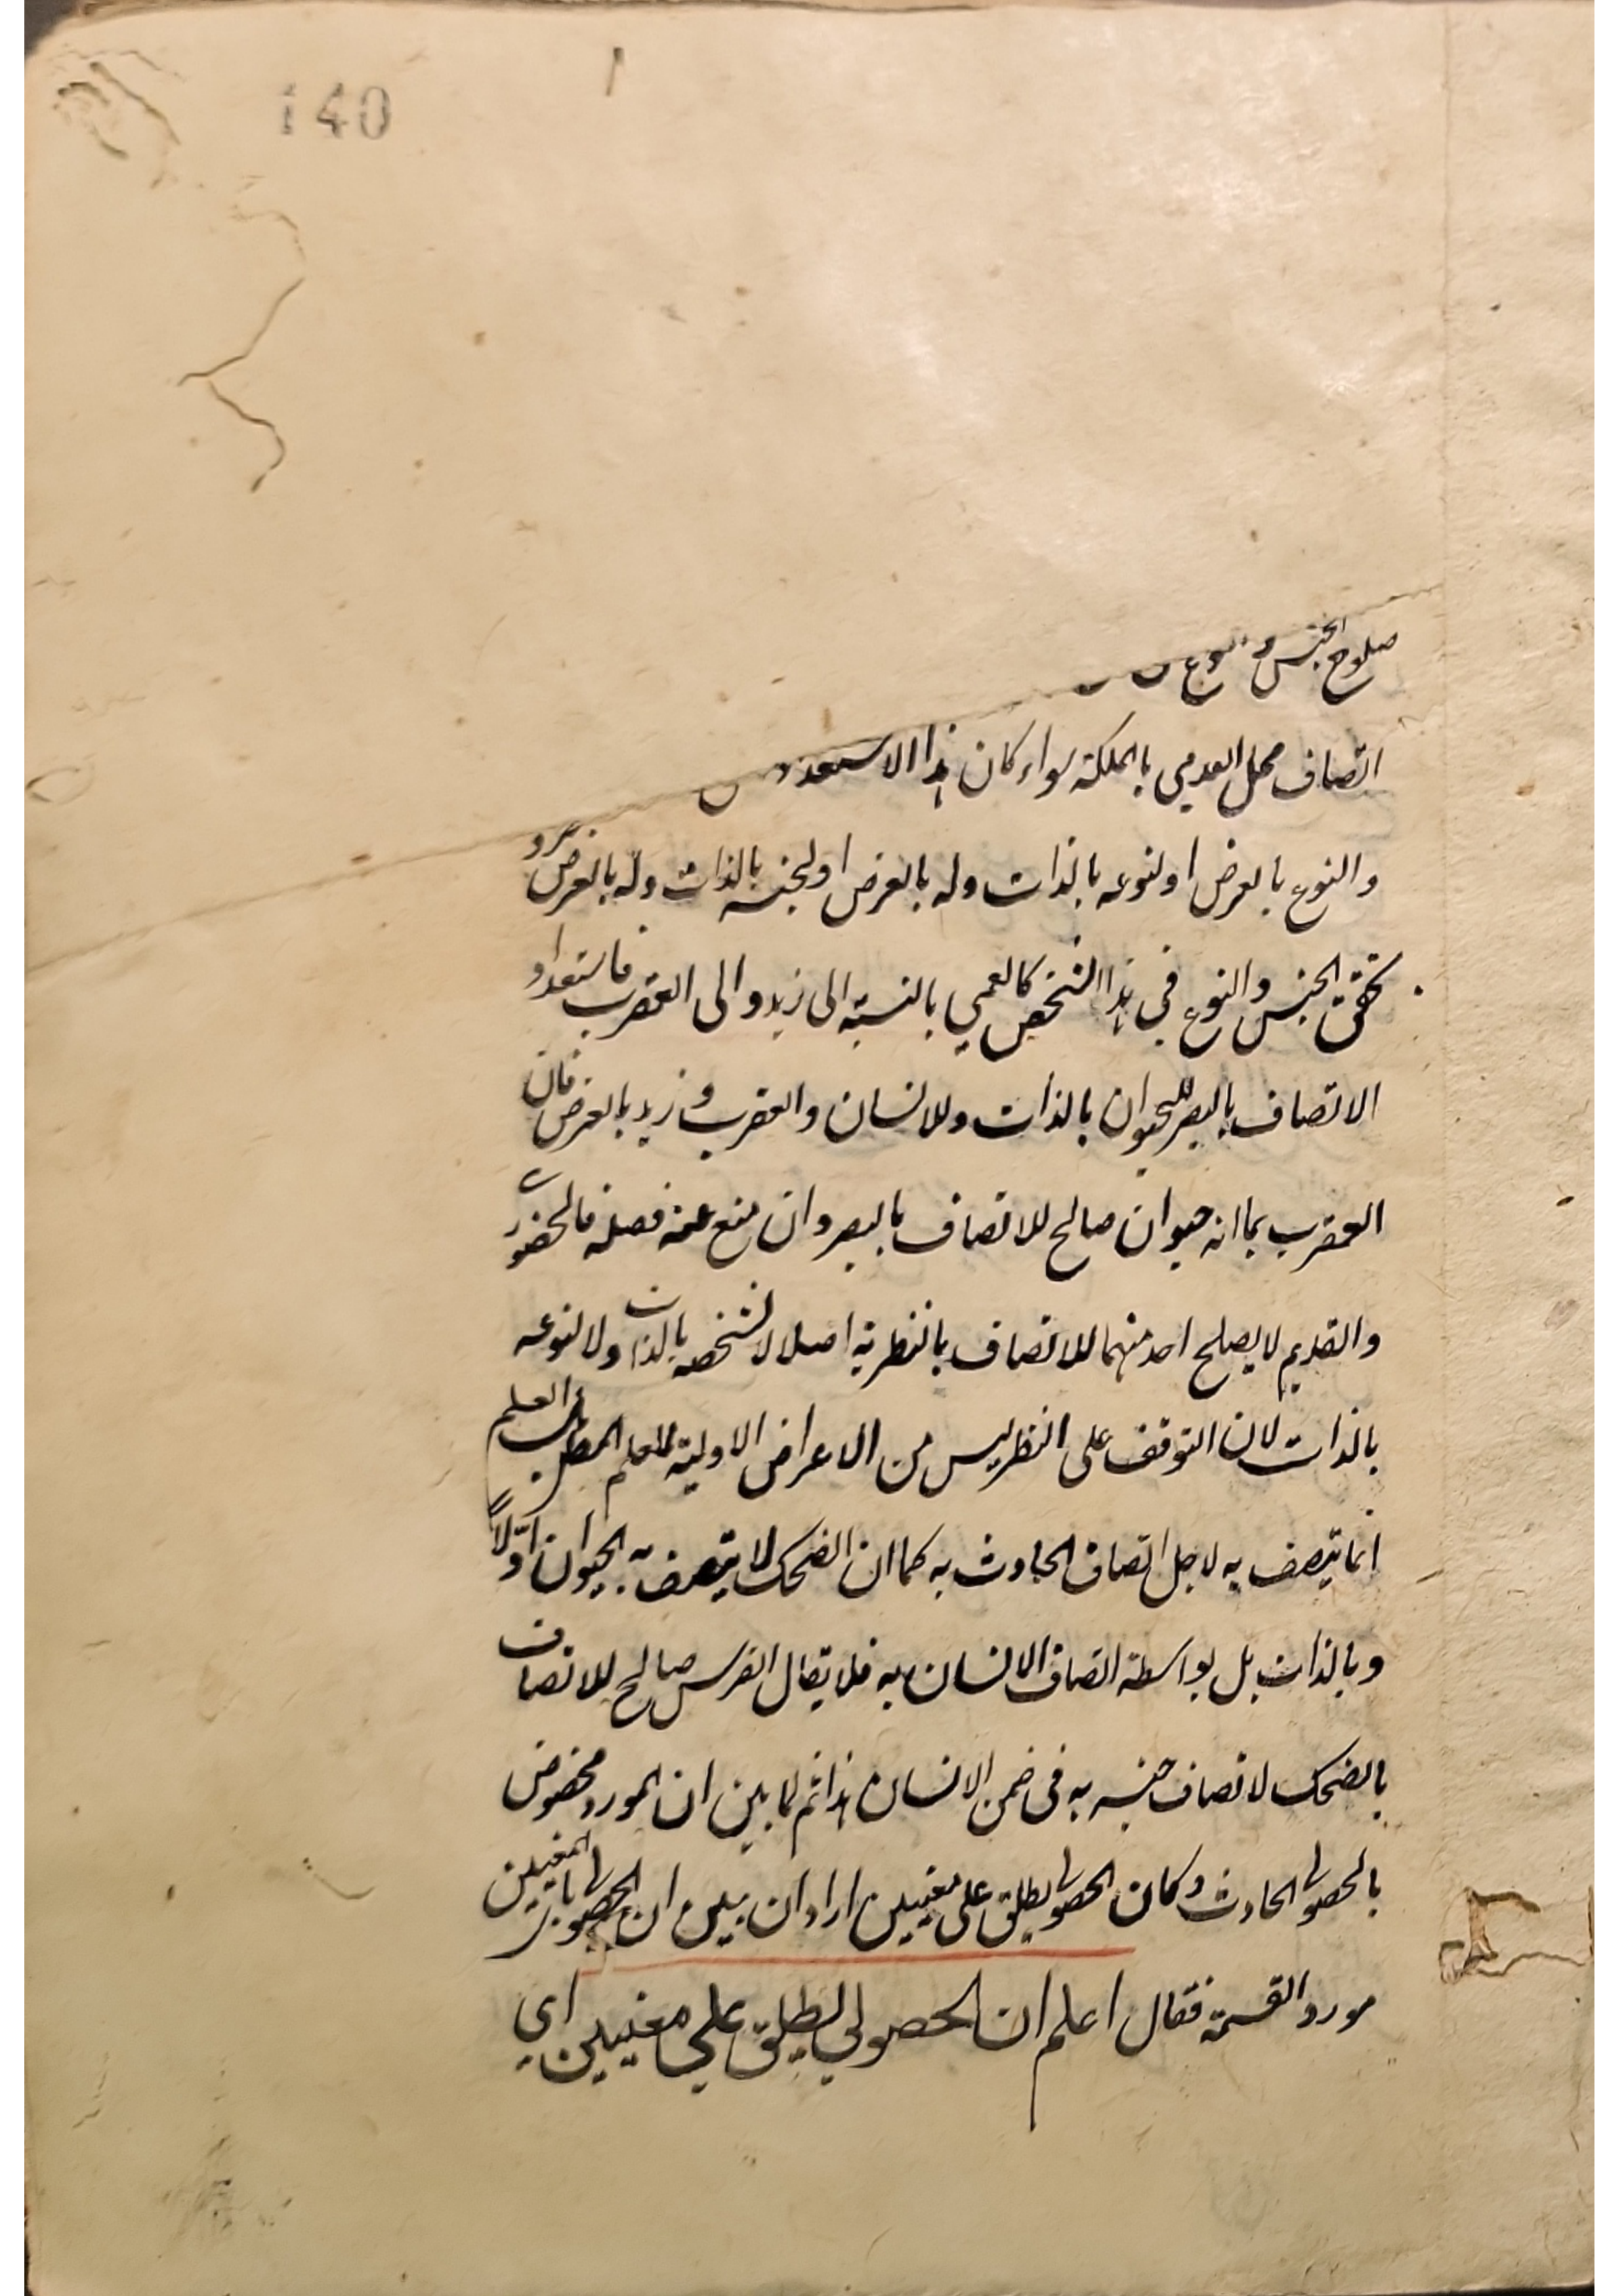 140
صلوح الجنس و
اتصاف محل العدمي بالملكة سواء كان هذا الاستعداد
والنوع بالعرض او لنوعه بالذات وله بالعرض او لجنسه بالذات وله بالعرض
تحقق الجنس والنوع في هذا الشخص كالعمي بالنسبة الى زيد والى العقرب فاستعداد
الاتصاف بالبصر للحيوان بالذات وللانسان والعقرب وزيد بالعرض فان
العقرب بما انه حيوان صالح للاتصاف بالبصر وان منع عنه فصله فالحضوري
والقديم لا يصلح احد منهما للاتصاف بالنظرية اصلا لا لشخصه بالذات ولا لنوعه
بالذات لان التوقف على النظر ليس من الاعراض الاولية للعلم المطلق بل العلم
انما يتصف به لاجل اتصاف الحادث به كما ان الضحك لا يتصف به الحيوان اوّلاً
وبالذات بل بواسطة اتصاف الانسان به فلا يقال الفرس صالح للاتصاف
بالضحك لاتصاف جنسه به في ضمن الانسان هذا ثم لما بين ان المورد مخصوص
بالحصولي الحادث وكان الحصولي يطلق على معنيين اراد ان يبين ان الحصولي باي المعنيين
مورد القسمة فقال اعلم ان الحصولي يطلق علي معنيين اي